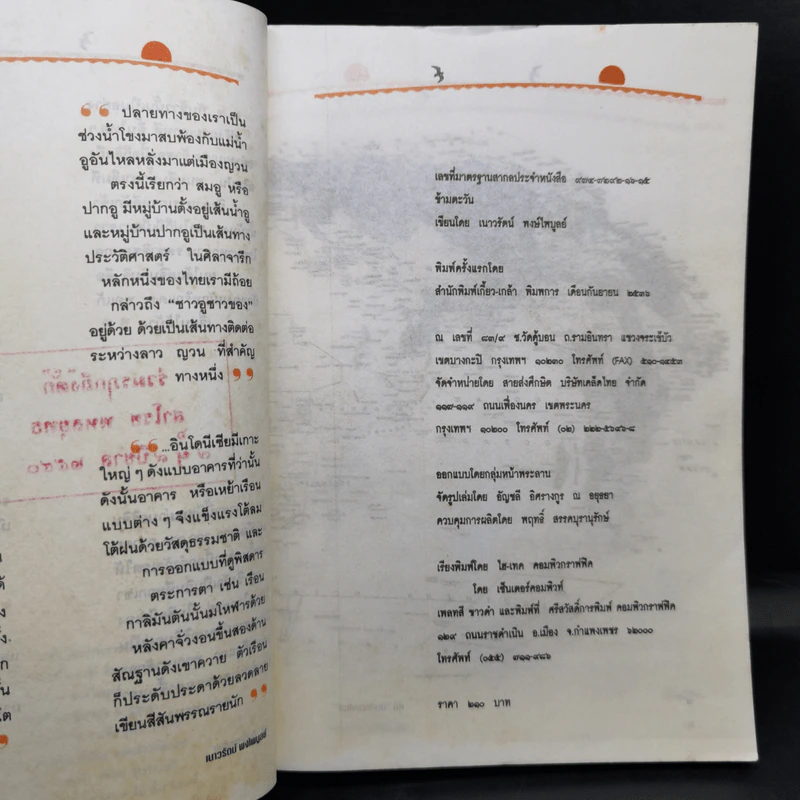 ปลายทางของเราเป็น
ช่วงน้ำโขงมาสบพ้องกับแม่น้ำ
อูอันไหลหลั่งมาแต่เมืองญวน
ตรงนี้เรียกว่า สมอู หรือ
ปากอู มีหมู่บ้านตั้งอยู่เส้นน้ำอู
และหมู่บ้านปากอูเป็นเส้นทาง
ประวัติศาสตร์ ในศิลาจารึก
หลักหนึ่งของไทยเรามีถ้อย
กล่าวถึง "ชาวอูชาวของ"
อยู่ด้วย ด้วยเป็นเส้นทางติดต่อ
ระหว่างลาว ญวน ที่สำคัญ
ทางหนึ่ง
...อินโดนีเซียมีเกาะ
ใหญ่ ๆ ดังแบบอาคารที่ว่านั้น
ดังนั้นอาคาร หรือเหย้าเรือน
แบบต่าง ๆ จึงแข็งแรงโต้ลม
โต้ฝนด้วยวัสดุธรรมชาติ และ
การออกแบบที่ดูพิสดาร
ตระการตา เช่น เรือน
กาลิมันตันนั้นมโหฬารด้วย
หลังคาจั่วงอนขึ้นสองด้าน
สัณฐานดังเขาควาย ตัวเรือน
ก็ประดับประดาด้วยลวดลาย
เขียนสีสันพรรณรายนัก
เนาวรัตน์ พงษ์ไพบูลย์
เลขที่มาตรฐานสากลประจำหนังสือ ๙๗๔-๓๒๙๒-๑๖-๑๕
ข้ามตะวัน
เขียนโดย เนาวรัตน์ พงษ์ไพบูลย์
พิมพ์ครั้งแรกโดย
สำนักพิมพ์เกี้ยว-เกล้า พิมพการ เดือนกันยายน ๒๕๓๖
ณ เลขที่ ๘๓/๙ ซ.วัดคู้บอน ถ.รามอินทรา แขวงจระเข้บัว
เขตบางกะปิ กรุงเทพฯ ๑๐๒๓๐ โทรศัพท์ (FAX) ๕๑๐-๑๔๕๓
จัดจำหน่ายโดย สายส่งศึกษิต บริษัทเคล็ดไทย จำกัด
๑๑๗-๑๑๙ ถนนเฟื่องนคร เขตพระนคร
กรุงเทพฯ ๑๐๒๐๐ โทรศัพท์ (๐๒) ๒๒๒-๕๖๙๖-๘
ออกแบบโดยกลุ่มหน้าพระลาน
จัดรูปเล่มโดย อัญชลี อิศรางกูร ณ อยุธยา
ควบคุมการผลิตโดย พฤทธิ์ สรรคบุรานุรักษ์
เรียงพิมพ์โดย ไฮ-เทค คอมพิวกราฟฟิค
โดย เซ็นเตอร์คอมพิวท์
เพลทสี ขาวดำ และพิมพ์ที่ ศรีสวัสดิ์การพิมพ์ คอมพิวกราฟฟิค
๑๒๙ ถนนราชดำเนิน อ.เมือง จ.กำแพงเพชร ๖๒๐๐๐
โทรศัพท์ (๐๕๕) ๗๑๑-๙๘๖
ราคา ๒๑๐ บาท